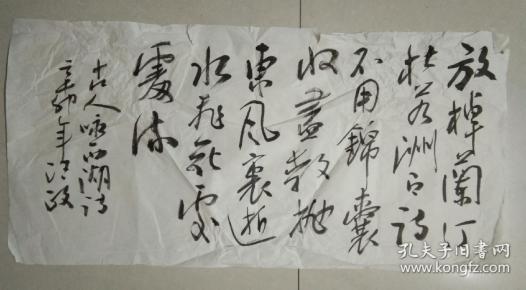 放棹蘭汀
杜若洲小詩
不用錦囊
收盡教抛
東風裏逝
水飛花處
處流
古人咏西湖诗
年
孔夫子旧书网
www.kongfz.com